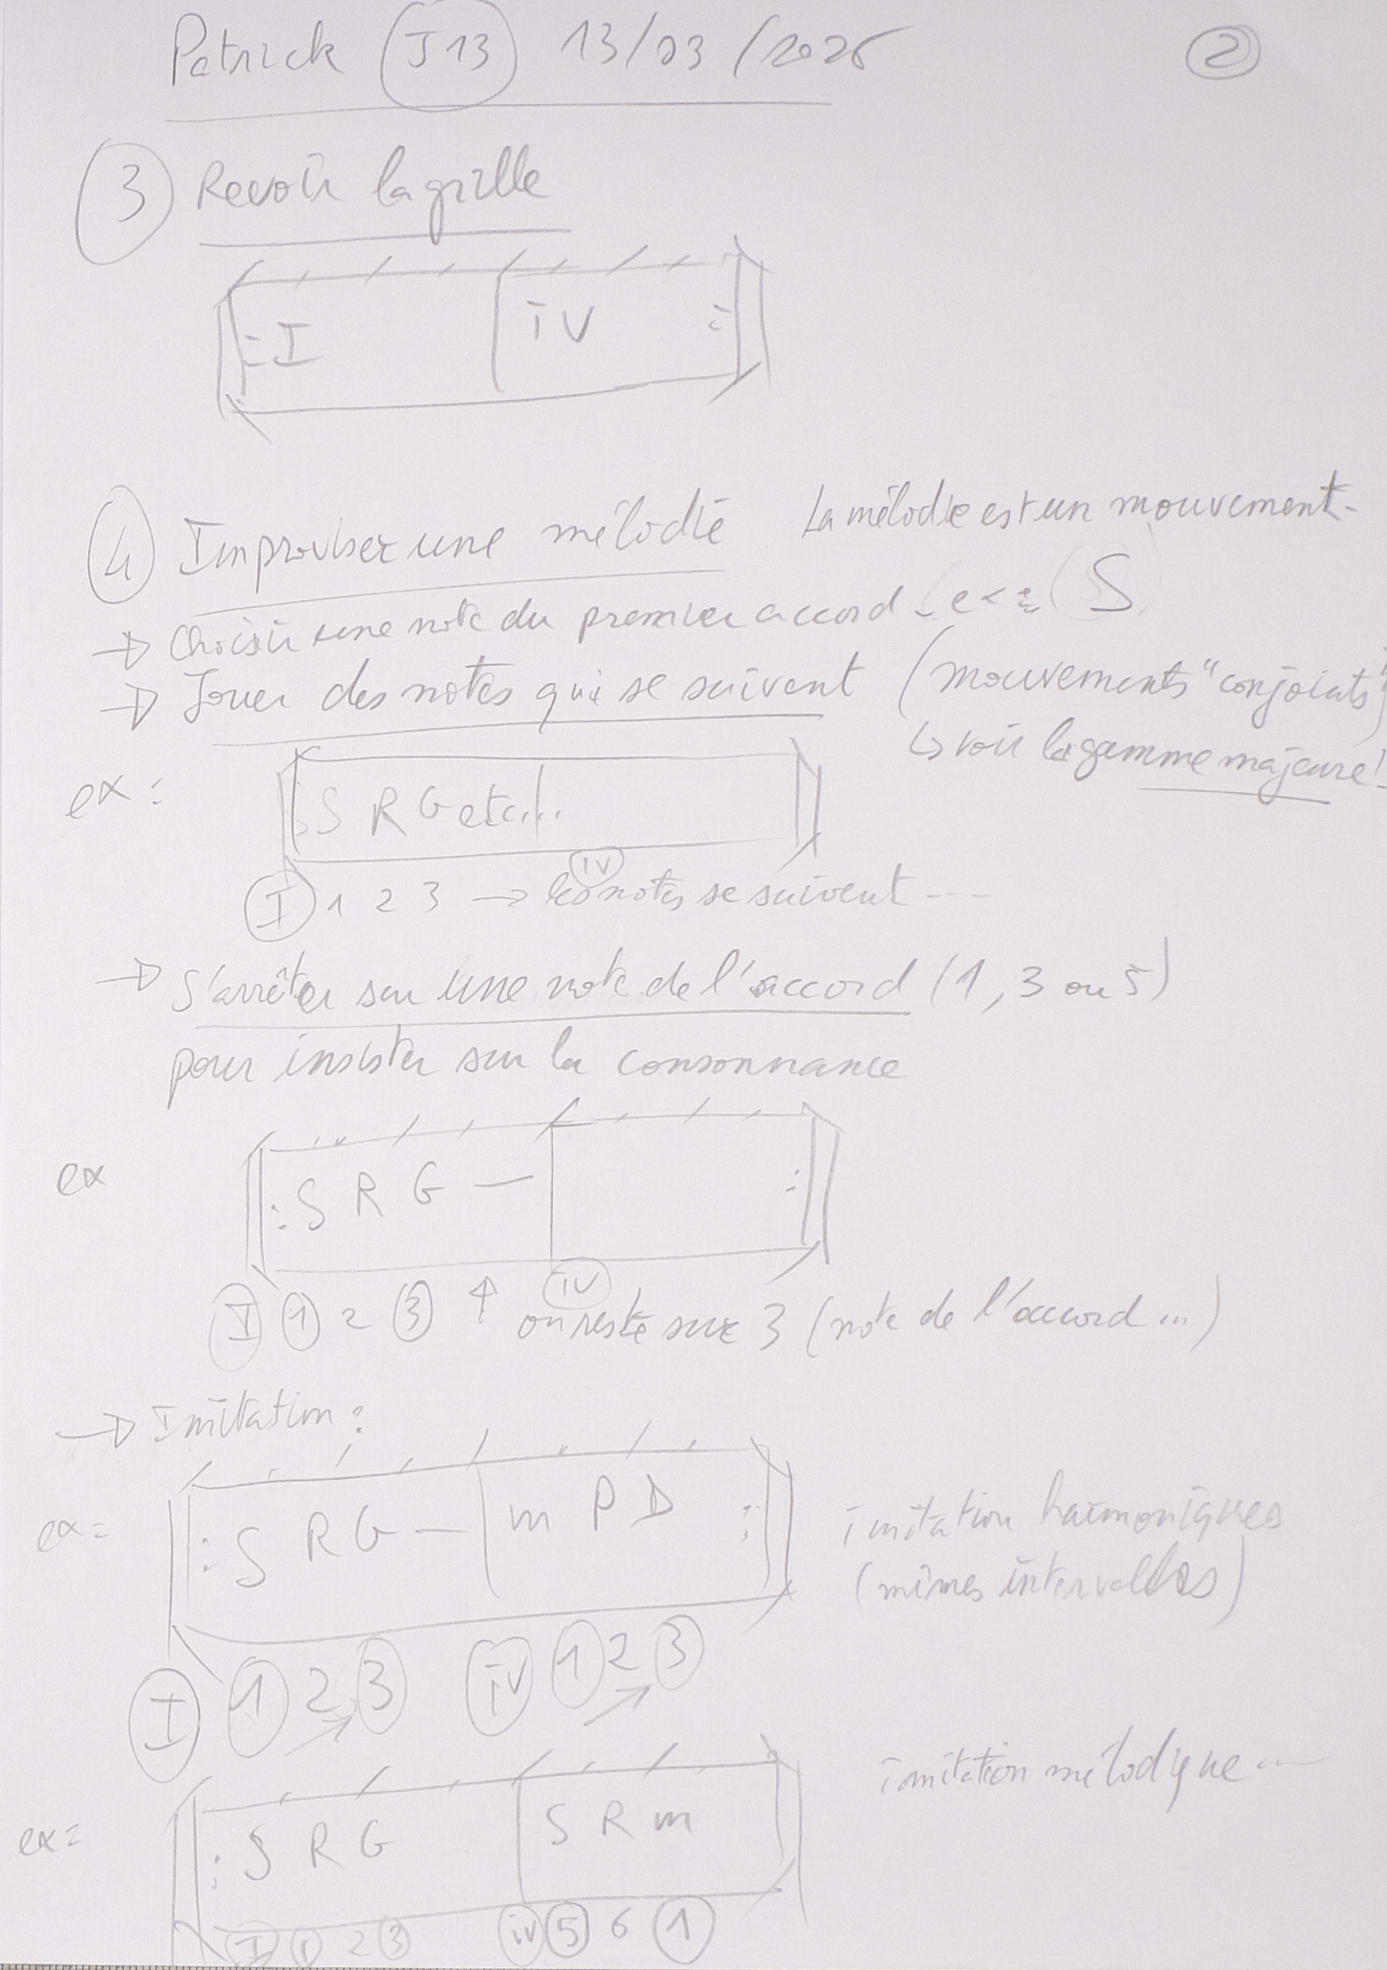 Patrick J13 13/03/2026 2
3 Revoir la grille
: I iv :
4 Improviser une mélodie La mélodie est un mouvement.
→ Choisir une note du premier accord ex: S
→ Jouer des notes qui se suivent (mouvements "conjoints")
↳ voir la gamme majeure!
ex: : S R G etc...
I 1 2 3 → les notes se suivent --- iv
→ S'arrêter sur une note de l'accord (1, 3 ou 5)
pour insister sur la consonnance
ex : S R G — :
I 1 2 3 ↑ iv on reste sur 3 (note de l'accord...)
→ Imitation:
ex= : S R G — m P D : imitation harmoniques
(mêmes intervalles)
I 1 2 3 iv 1 2 3
imitation mélodique...
ex= : S R G S R m
I 1 2 3 iv 5 6 1